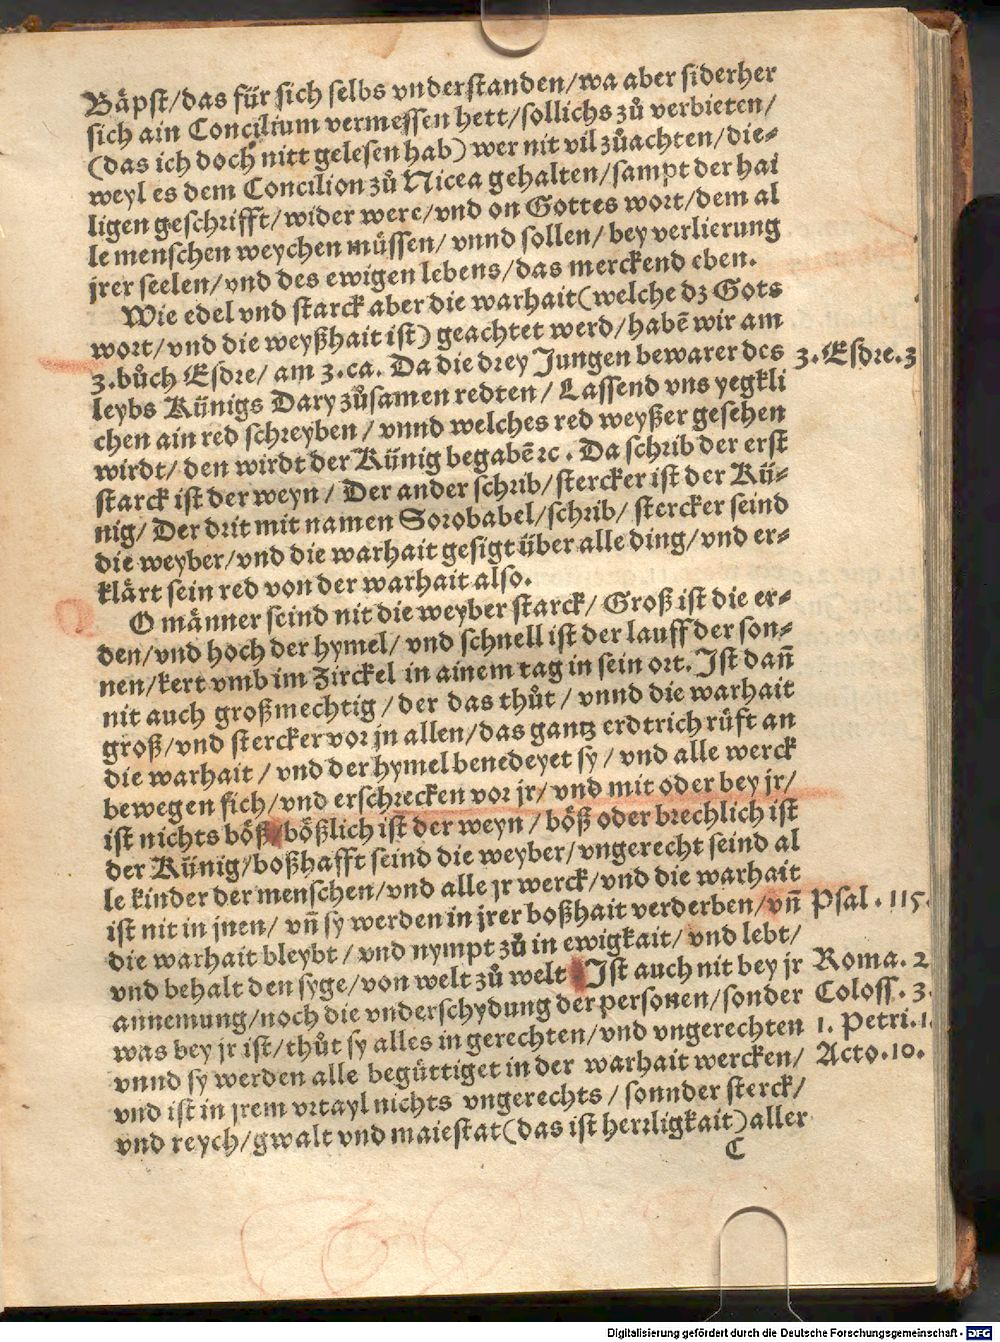 Bäpst/das für sich selbs vnderstanden/wa aber siderher
sich ain Concilium vermessen hett/sollichs zů verbieten/
(das ich doch nitt gelesen hab) wer nit vil zůachten/die-
weyl es dem Concilion zů Nicea gehalten/sampt der hai
ligen geschrifft/wider were/vnd on Gottes wort/dem al
le menschen weychen müssen/ vnnd sollen/ bey verlierung
jrer seelen/vnd des ewigen lebens/das merckend eben.
Wie edel vnd starck aber die warhait(welche dz Gots
wort/vnd die weyßhait ist) geachtet werd/habē wir am
3.bůch Esdre/ am 3.ca. Da die drey Jungen bewarer des
3.Esdre.3
leybs Künigs Dary zůsamen redten/ Lassend vns yegkli
chen ain red schreyben / vnnd welches red weyßer gesehen
wirdt/ den wirdt der Künig begabē ꝛc. Da schrib der erst
starck ist der weyn / Der ander schrib/ stercker ist der Kü-
nig/ Der drit mit namen Sorobabel/schrib/ stercker seind
die weyber/vnd die warhait gesigt über alle ding/vnd er-
klärt sein red von der warhait also.
O männer seind nit die weyber starck/ Groß ist die er-
den/vnd hoch der hymel/ vnd schnell ist der lauff der son-
nen/kert vmb im Zirckel in ainem tag in sein ort. Ist dañ
nit auch großmechtig / der das thůt / vnnd die warhait
groß/vnd stercker vor jn allen/das gantz erdtrich rüft an
die warhait / vnd der hymel benedeyet sy / vnd alle werck
bewegen sich/vnd erschrecken vor jr/ vnd mit oder bey jr/
ist nichts böß/bößlich ist der weyn / böß oder brechlich ist
der Künig/boßhafft seind die weyber/vngerecht seind al
le kinder der menschen/vnd alle jr werck/vnd die warhait
ist nit in jnen/ vñ sy werden in jrer boßhait verderben/vñ
Psal. 115.
die warhait bleybt / vnd nympt zů in ewigkait/ vnd lebt/
vnd behalt den syge/von welt zů welt Ist auch nit bey jr
Roma. 2
annemung/noch die vnderschydung der personen/sonder
Coloss. 3.
was bey jr ist/thůt sy alles in gerechten/vnd vngerechten
1. Petri.1.
vnnd sy werden alle begüttiget in der warhait wercken/
Acto.10.
vnd ist in jrem vrtayl nichts vngerechts / sonnder sterck/
vnd reych/gwalt vnd maiestat(das ist herrligkait)aller
C
Digitalisierung gefördert durch die Deutsche Forschungsgemeinschaft - DFG